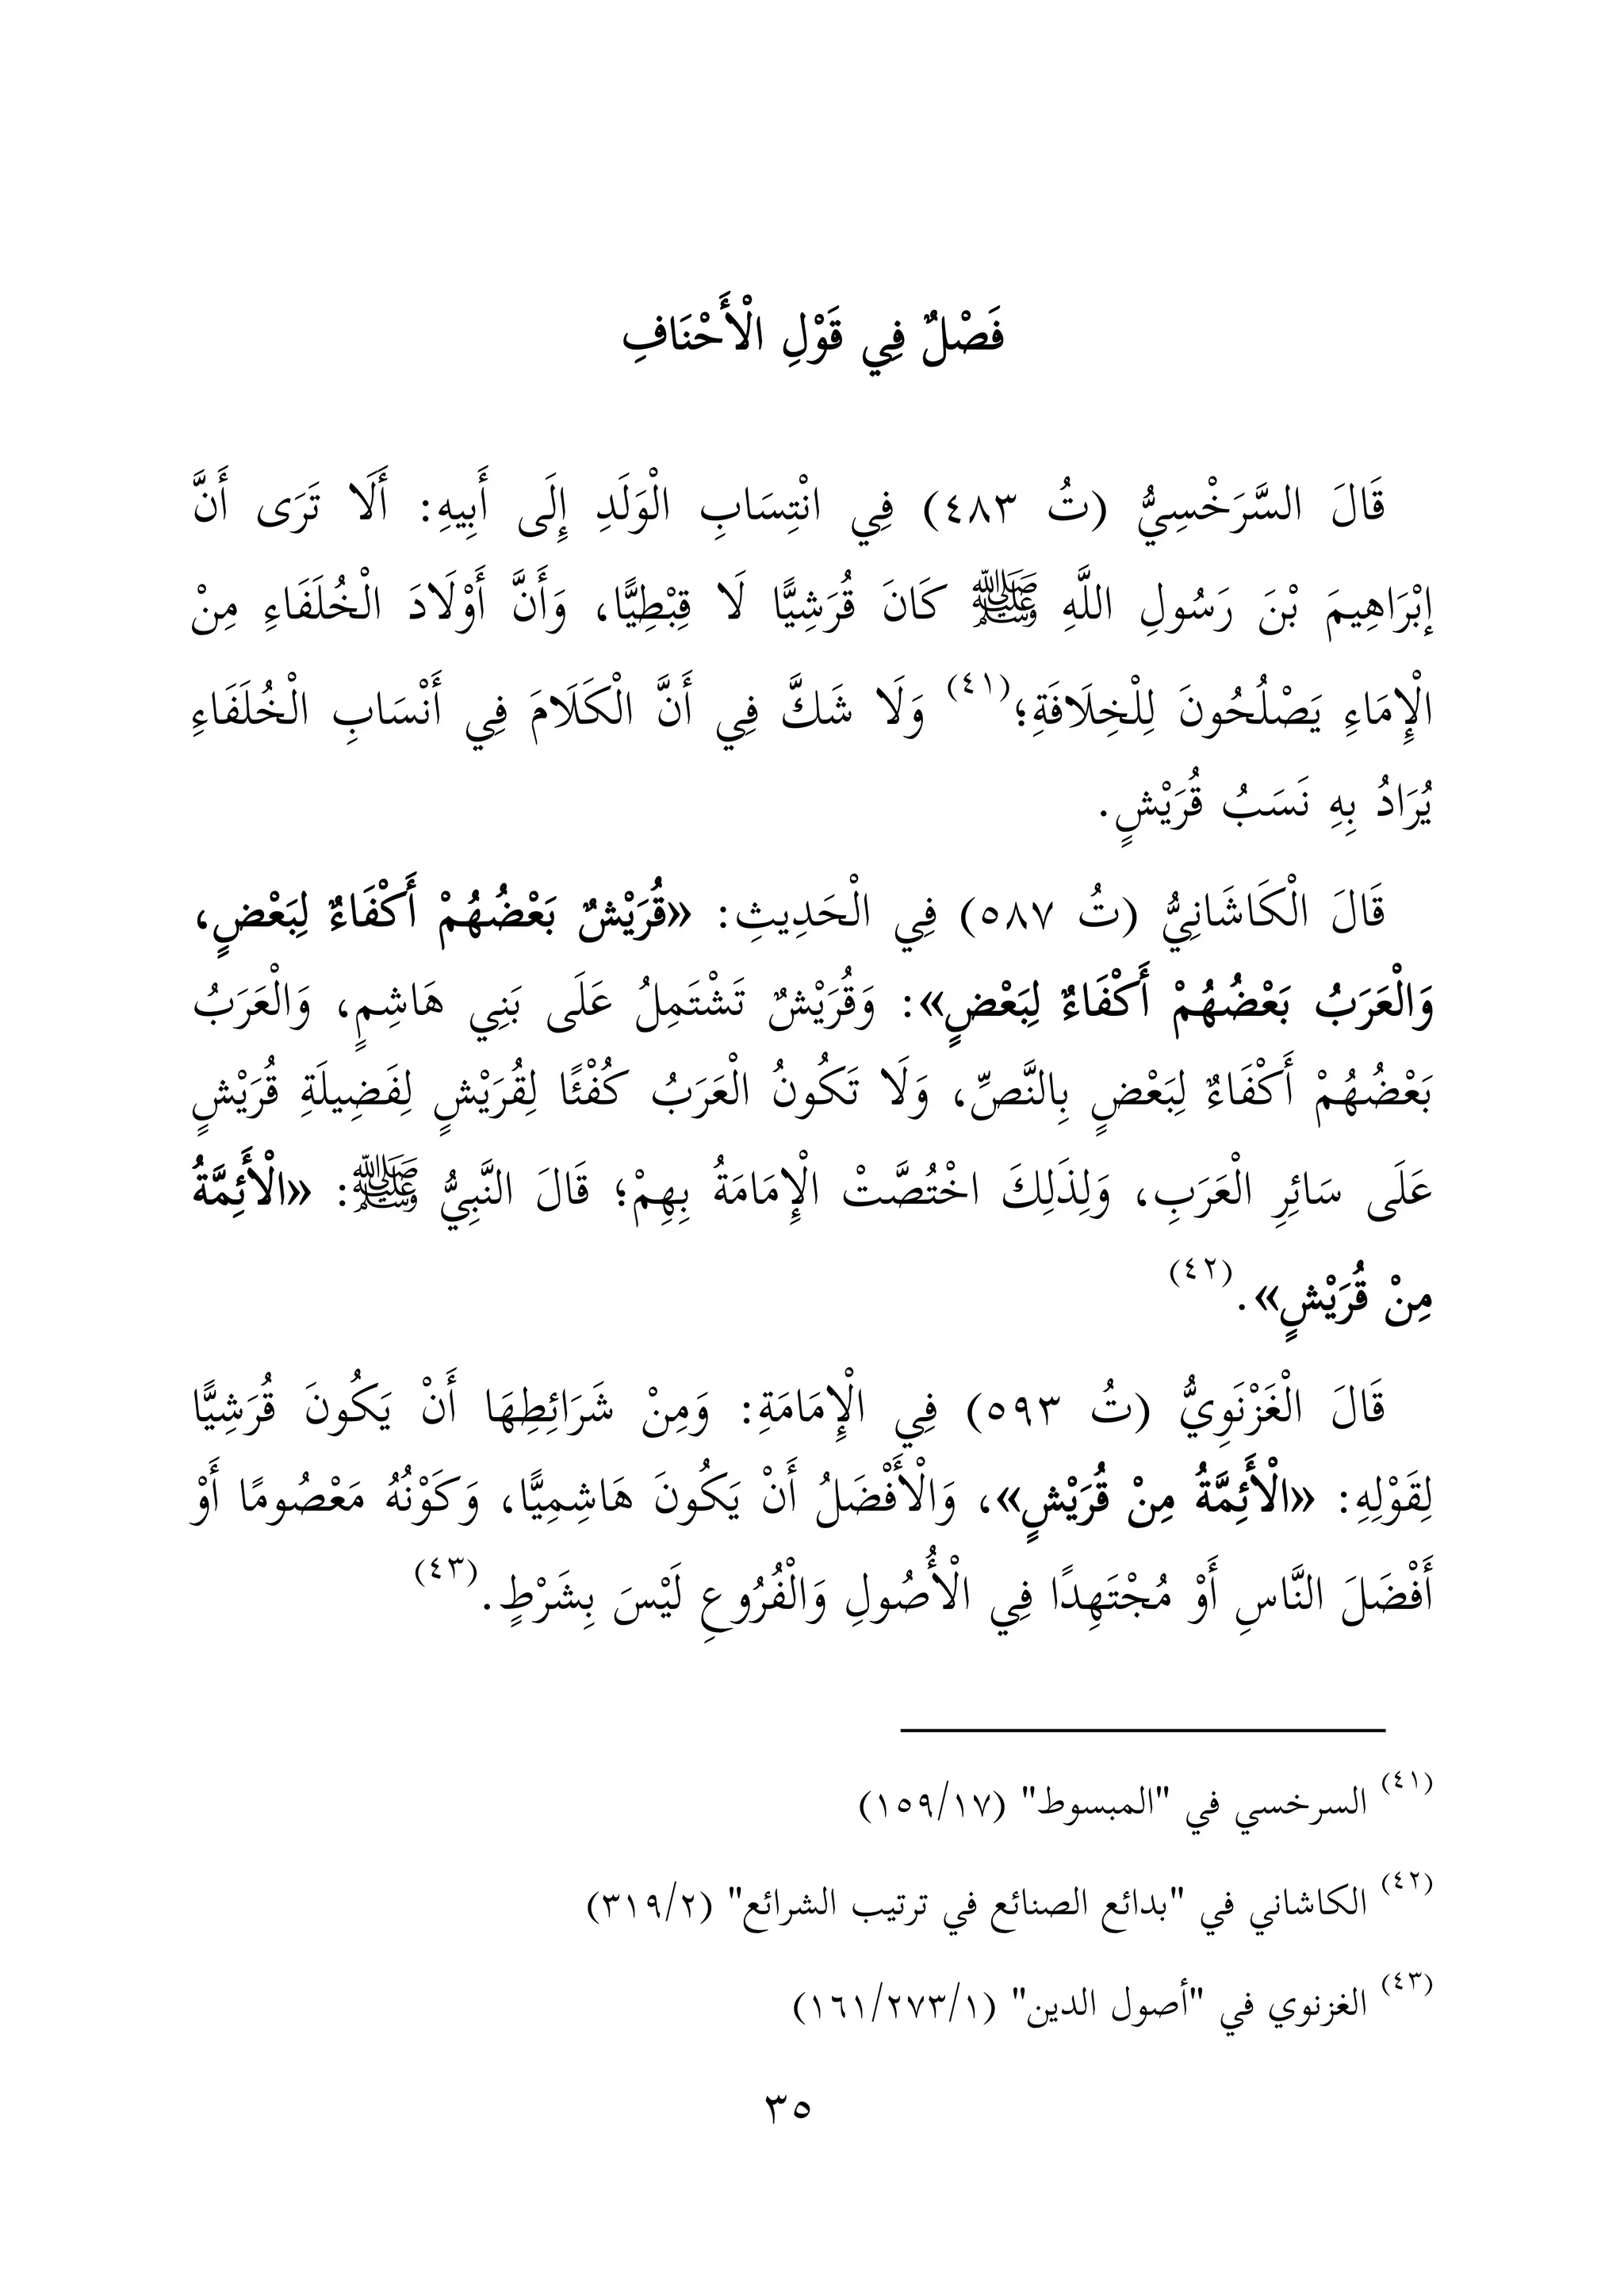 فَصْلٌ فِي قَوْلِ الْأَحْنَافِ
قَالَ السَّرَخْسِيُّ (تُ ٤٨٣) فِي انْتِسَابِ الْوَلَدِ إِلَى أَبِيهِ: أَلَا تَرَى أَنَّ
إِبْرَاهِيمَ بْنَ رَسُولِ اللَّهِ ﷺ كَانَ قُرَشِيًّا لَا قِبْطِيًّا، وَأَنَّ أَوْلَادَ الْخُلَفَاءِ مِنْ
الْإِمَاءِ يَصْلُحُونَ لِلْخِلَافَةِ؛(٤١) وَلَا شَكَّ فِي أَنَّ الْكَلَامَ فِي أَنْسَابِ الْخُلَفَاءِ
يُرَادُ بِهِ نَسَبُ قُرَيْشٍ.
قَالَ الْكَاشَانِيُّ (تُ ٥٨٧) فِي الْحَدِيثِ: «قُرَيْشٌ بَعْضُهُمْ أَكْفَاءٌ لِبَعْضٍ،
وَالْعَرَبُ بَعْضُهُمْ أَكْفَاءٌ لِبَعْضٍ»: وَقُرَيْشٌ تَشْتَمِلُ عَلَى بَنِي هَاشِمٍ، وَالْعَرَبُ
بَعْضُهُمْ أَكْفَاءٌ لِبَعْضٍ بِالنَّصِّ، وَلَا تَكُونُ الْعَرَبُ كُفْئًا لِقُرَيْشٍ لِفَضِيلَةِ قُرَيْشٍ
عَلَى سَائِرِ الْعَرَبِ، وَلِذَلِكَ اخْتُصَّتْ الْإِمَامَةُ بِهِمْ؛ قَالَ النَّبِيُّ ﷺ: «الْأَئِمَّةُ
مِنْ قُرَيْشٍ».(٤٢)
قَالَ الْغَزْنَوِيُّ (تُ ٥٩٣) فِي الْإِمَامَةِ: وَمِنْ شَرَائِطِهَا أَنْ يَكُونَ قُرَشِيًّا
لِقَوْلِهِ: «الْأَئِمَّةُ مِنْ قُرَيْشٍ»، وَالْأَفْضَلُ أَنْ يَكُونَ هَاشِمِيًّا، وَكَوْنُهُ مَعْصُومًا أَوْ
أَفْضَلَ النَّاسِ أَوْ مُجْتَهِدًا فِي الْأُصُولِ وَالْفُرُوعِ لَيْسَ بِشَرْطٍ.(٤٣)
(٤١) السرخسي في "المبسوط" (١٥٩/١٧)
(٤٢) الكاشاني في "بدائع الصنائع في ترتيب الشرائع" (٣١٩/٢)
(٤٣) الغزنوي في "أصول الدين" (١٦١/٢٧٣/١)
٣٥